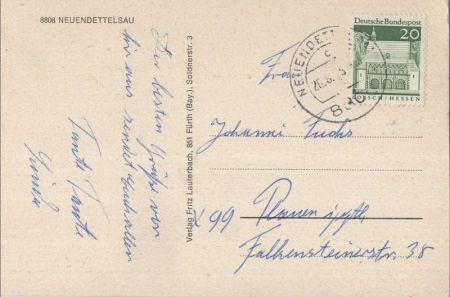 8806 NEUENDETTELSAU
Die besten Grüße von
hier aus sendet Euch allen
Tante
Verlag Fritz Lauterbach, 851 Fürth (Bay.), Soldnerstr. 3
NEUENDETT
Deutsche Bundespost
20
LORSCH/HESSEN
Frau
Johanni Fuchs
X 99 Plauen
Falkensteinerstr. 38